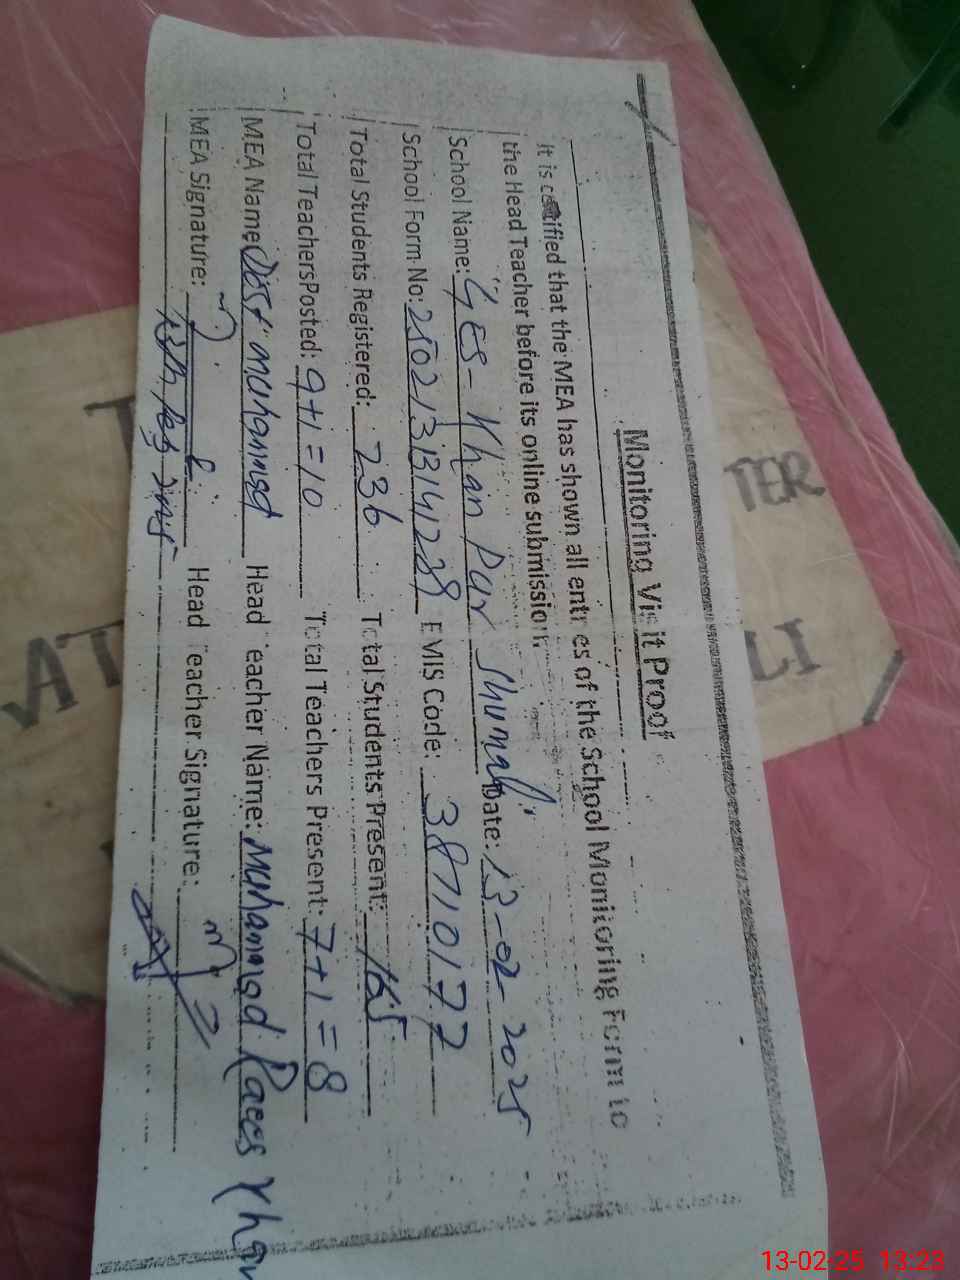 Monitoring Visit Proof
It is certified that the MEA has shown all entries of the School Monitoring Form to
the Head Teacher before its online submission.
School Name: GES- Khan Pur Shumali Date: 13-02-2025
School Form No: 250213131412 EMIS Code: 38710177
Total Students Registered: 236 Total Students Present: 165
Total TeachersPosted: 9+1=10 Total Teachers Present: 7+1=8
MEA Name: Dost muhammad Head Teacher Name: Muhammad Raees Khan
MEA Signature: Head Teacher Signature:
TER
LI
AT
13-02-25 13:23